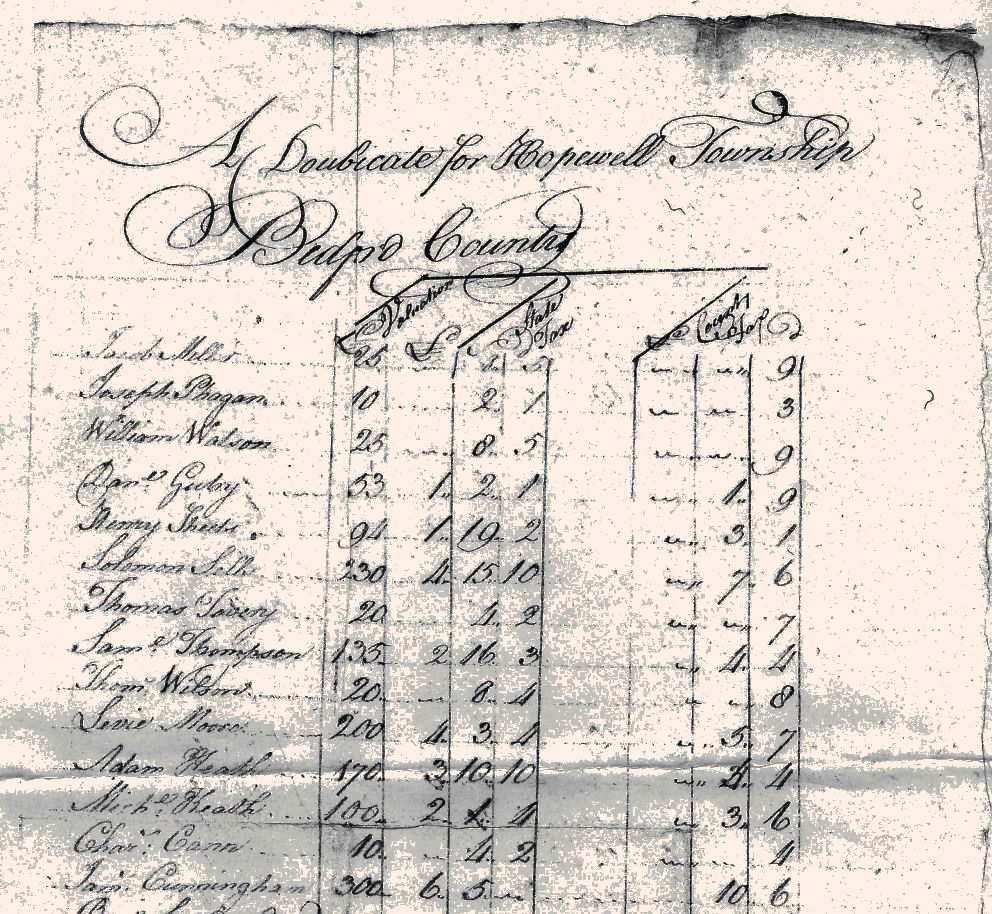 A Doublicate for Hopewell Township
Bedford County
Valuation £ State Tax £ County Tax D
Jacob Miller 25 5 9
Joseph Phagan 10 2 1 3
William Watson 25 8 5 9
Dan.l 53 1 2 1 1 9
Henry Sheets 94 1 19 2 3 1
Solomon Sills 230 4 15 10 7 6
Thomas 20 4 2 7
Sam.l Thompson 135 2 16 3 4 4
Thom. Wilson 20 8 4 8
Levie Moore 200 4 3 4 5 7
Adam Heath 170 3 10 10 4 4
Mich.l Heath 100 2 1 4 3 6
Cha.s Cann 10 4 2 4
Jam. Cunningham 300 6 5 10 6